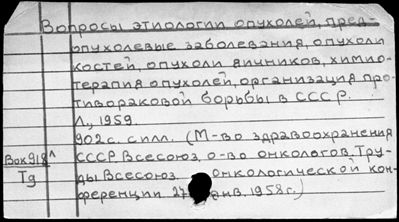 Вопросы этиологии опухолей, пред-
опухолевые заболевания, опухоли
костей, опухоли яичников, химио-
терапия опухолей, организация про-
тивораковой борьбы в СССР.
Л., 1959.
902с. с илл. (М-во здравоохранения
СССР Всесоюз. о-во онкологов. Тру-
ды Всесоюз. онкологической кон-
ференции 27 янв. 1958г.)
Вох918л
Tg